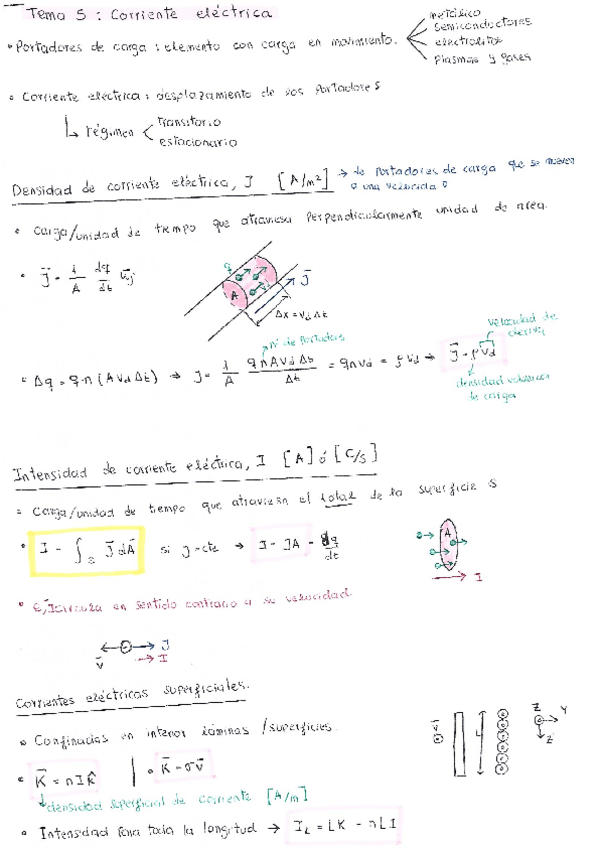 Tema 5 : Corriente eléctrica
• Portadores de carga : elemento con carga en movimiento.
metálico
Semiconductores
electrolitos
Plasmas y gases
• Corriente eléctrica : desplazamiento de los portadores
↳ régimen
transitorio
estacionario
Densidad de corriente eléctrica, J [A/m²] → de portadores de carga que se mueven a una velocidad
• Carga/unidad de tiempo que atraviesa perpendicularmente unidad de área.
• J⃗ = 1/A dq/dt û_j
q
A
J⃗
Δx = Vd Δt
nº de portadores
• Δq = q·n (A Vd Δt) → J = 1/A q n A Vd Δt / Δt = q n Vd = ρ Vd → J⃗ = ρ V⃗d
velocidad de deriva
densidad
de carga
Intensidad de corriente eléctrica, I [A] ó [C/s]
• Carga/unidad de tiempo que atraviesa el total de la superficie S
• I = ∫s J⃗ dA⃗ si J=cte → I = JA = dq/dt
A
I
circula en sentido contrario a su velocidad
v⃗ J
I
Corrientes eléctricas superficiales.
• Confinadas en interior láminas / superficies.
• K⃗ = nIk̂ | • K⃗ = σv⃗
densidad superficial de corriente [A/m]
• Intensidad para toda la longitud → I_L = LK = nLI
v⃗
L
Z
Y
Z